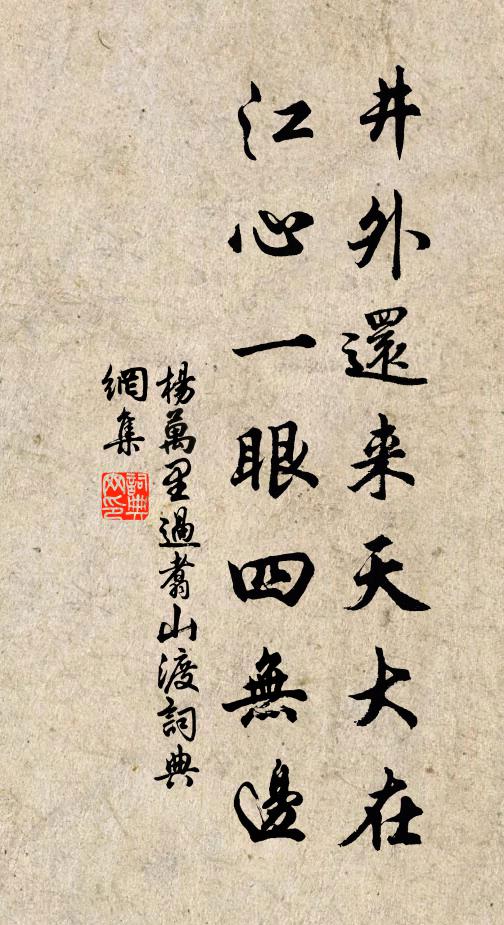 井外還来天大在
江心一眼四無邊
楊萬里過翥山渡詞典
網集
詞典
網印